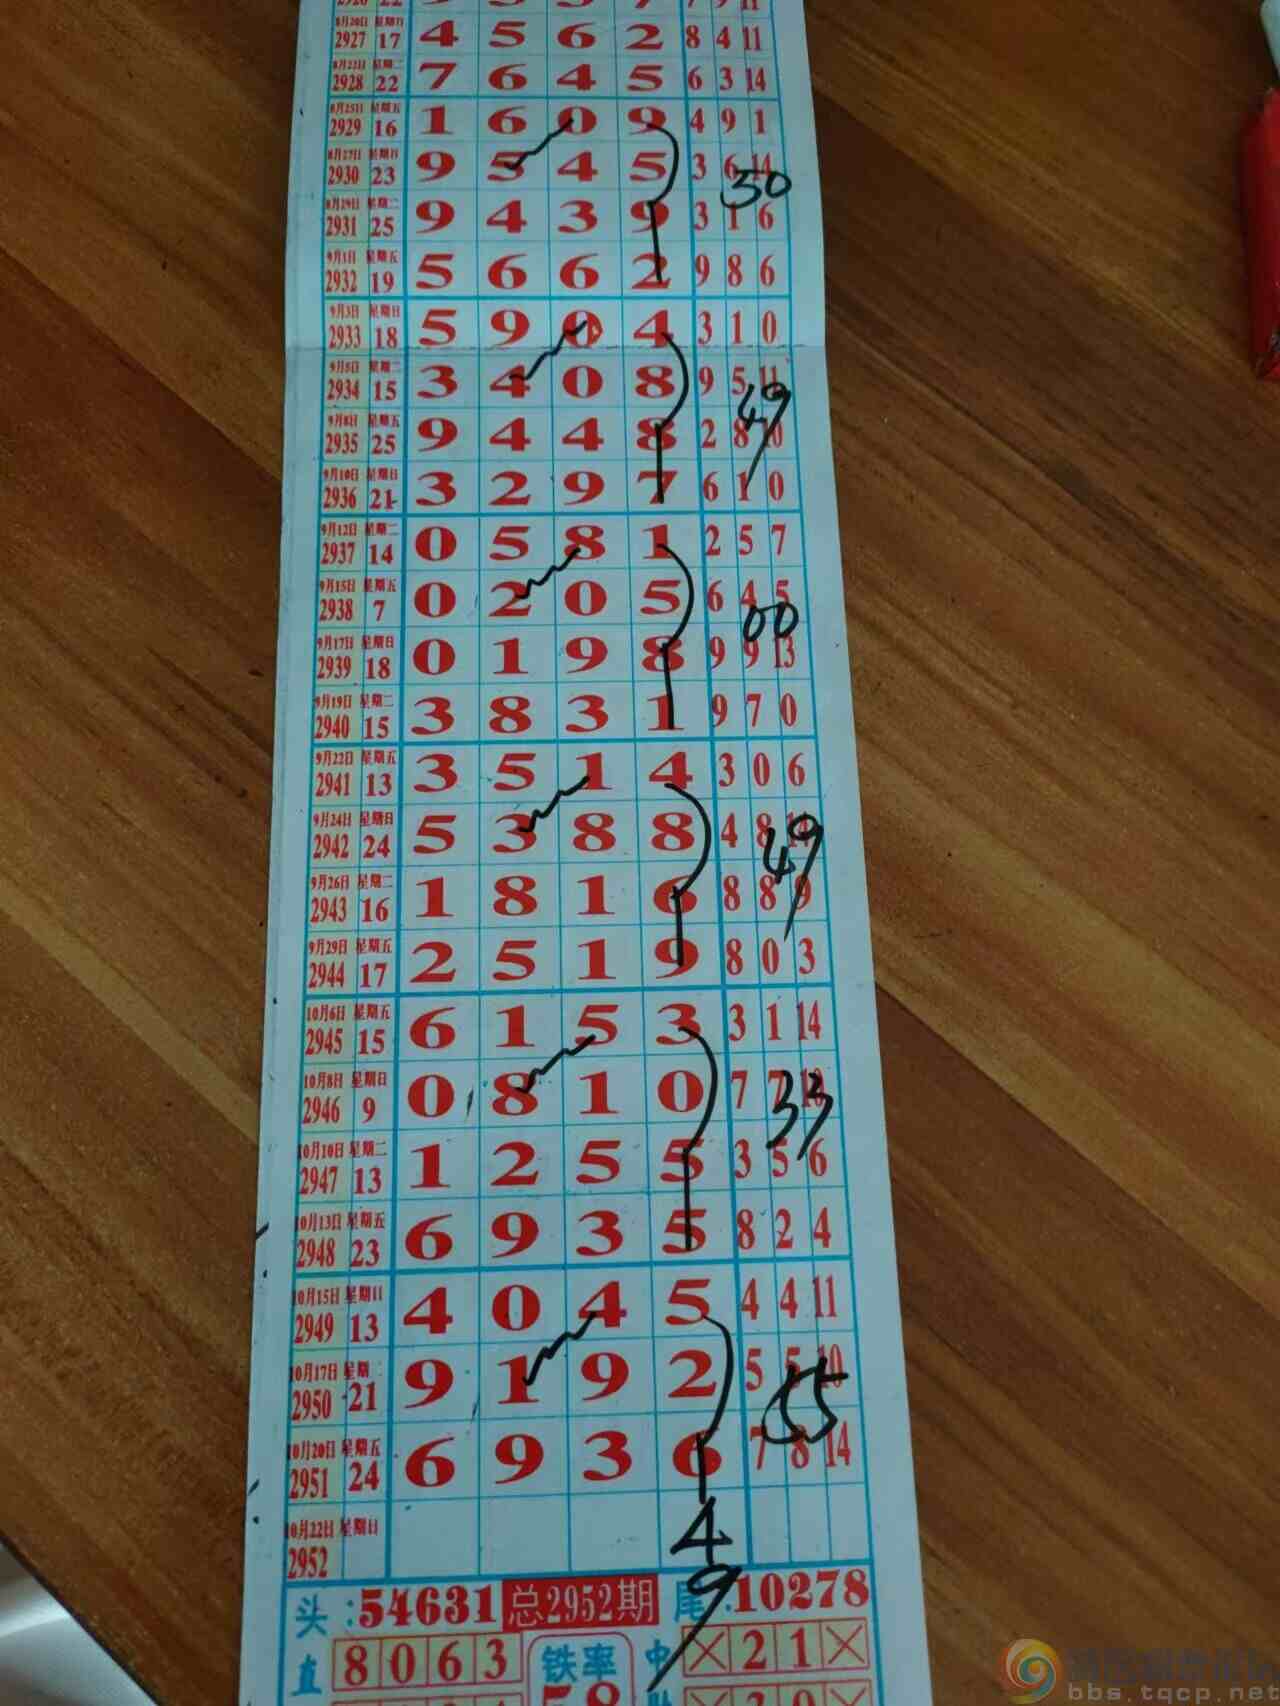 8月20日 星期日
2927 17 4 5 6 2 8 4 11
8月22日 星期二
2928 22 7 6 4 5 6 3 14
8月25日 星期五
2929 16 1 6 0 9 4 9 1
8月27日 星期日
2930 23 9 5 4 5 3 6 14
30
8月29日 星期二
2931 25 9 4 3 9 3 1 6
9月1日 星期五
2932 19 5 6 6 2 9 8 6
9月3日 星期日
2933 18 5 9 0 4 3 1 0
9月5日 星期二
2934 15 3 4 0 8 9 5 11
49
9月8日 星期五
2935 25 9 4 4 8 2 8 10
9月10日 星期日
2936 21 3 2 9 7 6 1 0
9月12日 星期二
2937 14 0 5 8 1 2 5 7
9月15日 星期五
2938 7 0 2 0 5 6 4 5
00
9月17日 星期日
2939 18 0 1 9 8 9 9 13
9月19日 星期二
2940 15 3 8 3 1 9 7 0
9月22日 星期五
2941 13 3 5 1 4 3 0 6
9月24日 星期日
2942 24 5 3 8 8 4 8 14
49
9月26日 星期二
2943 16 1 8 1 6 8 8 9
9月29日 星期五
2944 17 2 5 1 9 8 0 3
10月6日 星期五
2945 15 6 1 5 3 3 1 14
10月8日 星期日
2946 9 0 8 1 0 7 7 10
33
10月10日 星期二
2947 13 1 2 5 5 3 5 6
10月13日 星期五
2948 23 6 9 3 5 8 2 4
10月15日 星期日
2949 13 4 0 4 5 4 4 11
10月17日 星期二
2950 21 9 1 9 2 5 5 10
55
10月20日 星期五
2951 24 6 9 3 6 7 8 14
10月22日 星期日
2952
4
9
头:54631 总2952期 尾:10278
直 8063 铁率 中 ×21×
58
bbs.tqcp.net